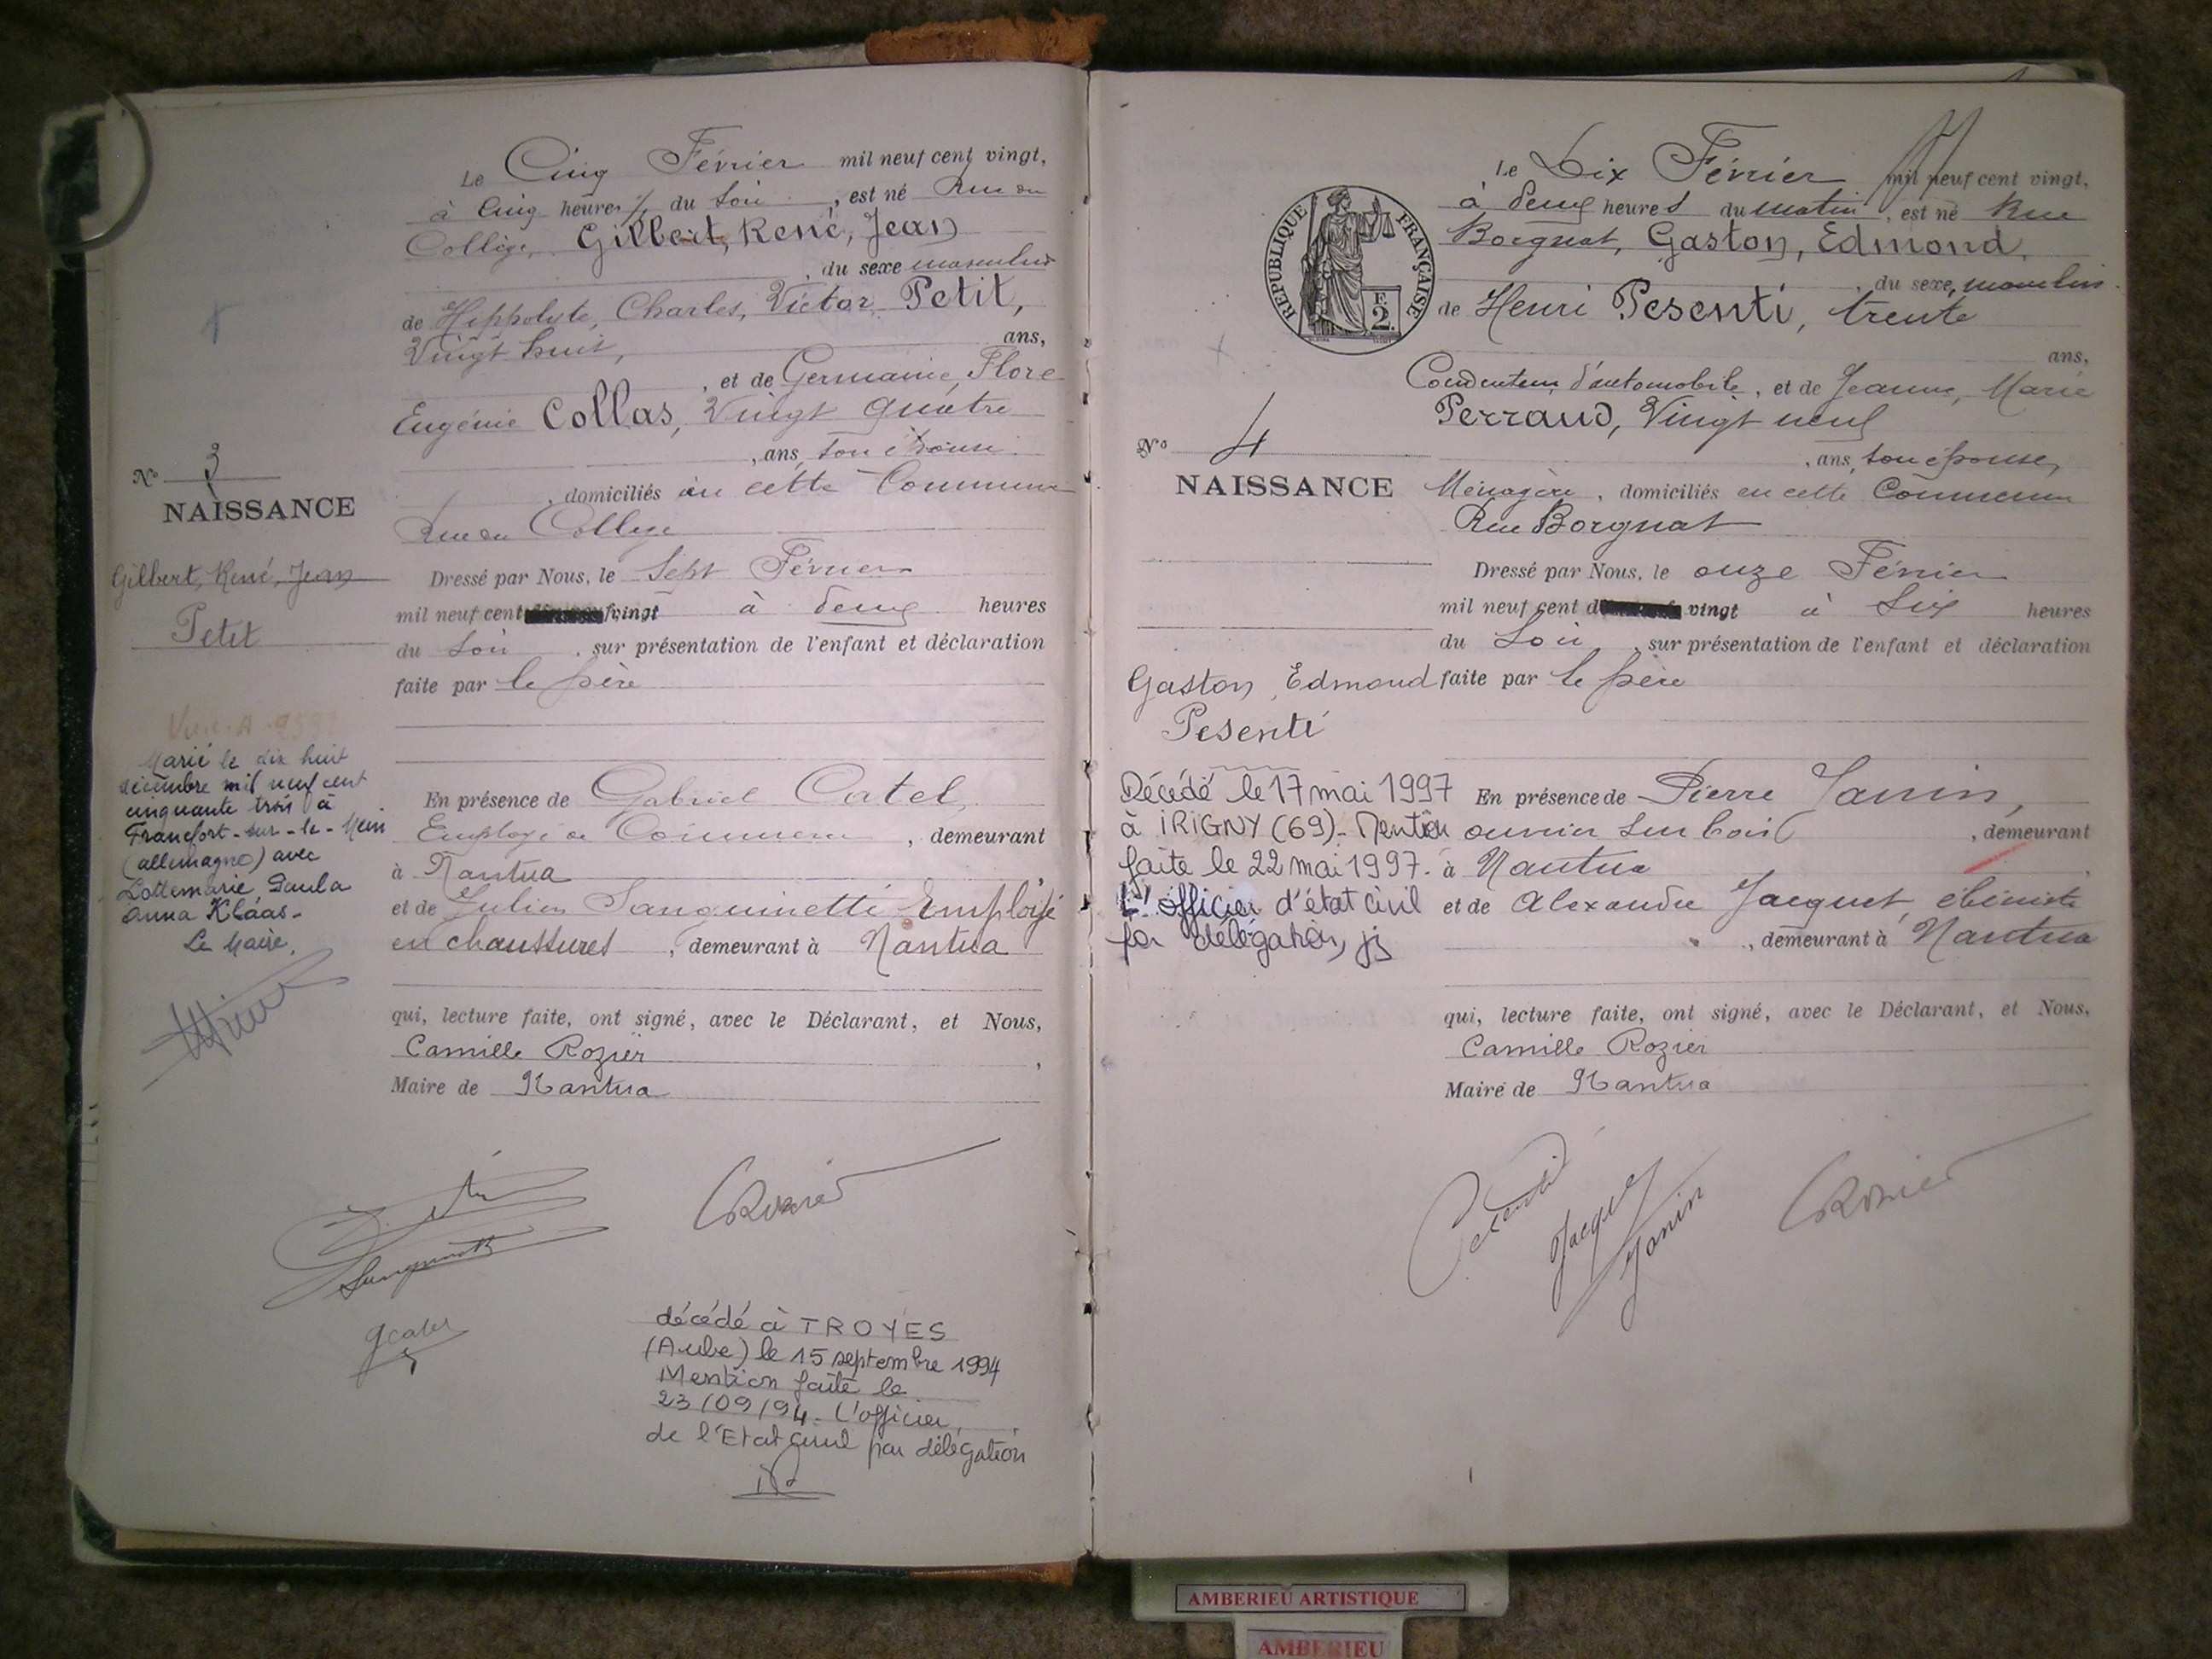 Le Cinq Février mil neuf cent vingt,
à Cinq heures ½ du Soir, est né Rue du
Collège, Gilbert, René, Jean
, du sexe masculin
de Hippolyte, Charles, Victor Petit,
Vingt huit, ans,
, et de Germaine, Flore
Eugénie Collas, Vingt quatre
, ans, son épouse
, domiciliés en cette Commune
Rue du Collège
No 3
NAISSANCE
Gilbert, René, Jean
Petit
Dressé par Nous, le Sept Février
mil neuf cent vingt à deux heures
du Soir, sur présentation de l'enfant et déclaration
faite par le père
Marié le dix huit
décembre mil neuf cent
cinquante trois à
Francfort-sur-le-Mein
(allemagne) avec
Lottemarie Paula
Anna Klaas-
Le Maire,
En présence de Gabriel Catel,
Employé de Commerce, demeurant
à Nantua
et de Julien Sanguinetti Employé
en chaussures, demeurant à Nantua
qui, lecture faite, ont signé, avec le Déclarant, et Nous,
Camille Rozier,
Maire de Nantua
Sanguinetti
CRozier
gcatel
décédé à TROYES
(Aube) le 15 septembre 1994
Mention faite le
23/09/94. L'officier
de l'Etat Civil par délégation
RÉPUBLIQUE FRANÇAISE
F.
2.
Le Dix Février mil neuf cent vingt,
à deux heures du matin, est né Rue
Borgnat, Gaston, Edmond,
, du sexe masculin
de Henri Pesenti, trente
ans,
Conducteur d'automobile, et de Jeanne, Marie
Perraud, Vingt neuf
, ans, son épouse,
Ménagère, domiciliés en cette Commune
Rue Borgnat
No 4
NAISSANCE
Dressé par Nous, le onze Février
mil neuf cent vingt à Six heures
du Soir, sur présentation de l'enfant et déclaration
faite par le père
Gaston, Edmond
Pesenti
Décédé le 17 mai 1997
à IRIGNY (69). Mention
faite le 22 mai 1997.
L'officier d'état civil
par délégation,
En présence de Pierre Janin,
ouvrier sur bois, demeurant
à Nantua
et de Alexandre Jacquet, ébéniste
, demeurant à Nantua
qui, lecture faite, ont signé, avec le Déclarant, et Nous,
Camille Rozier
Maire de Nantua
Pesenti
Jacquet
Janin
CRozier
AMBERIEU ARTISTIQUE
AMBERIEU